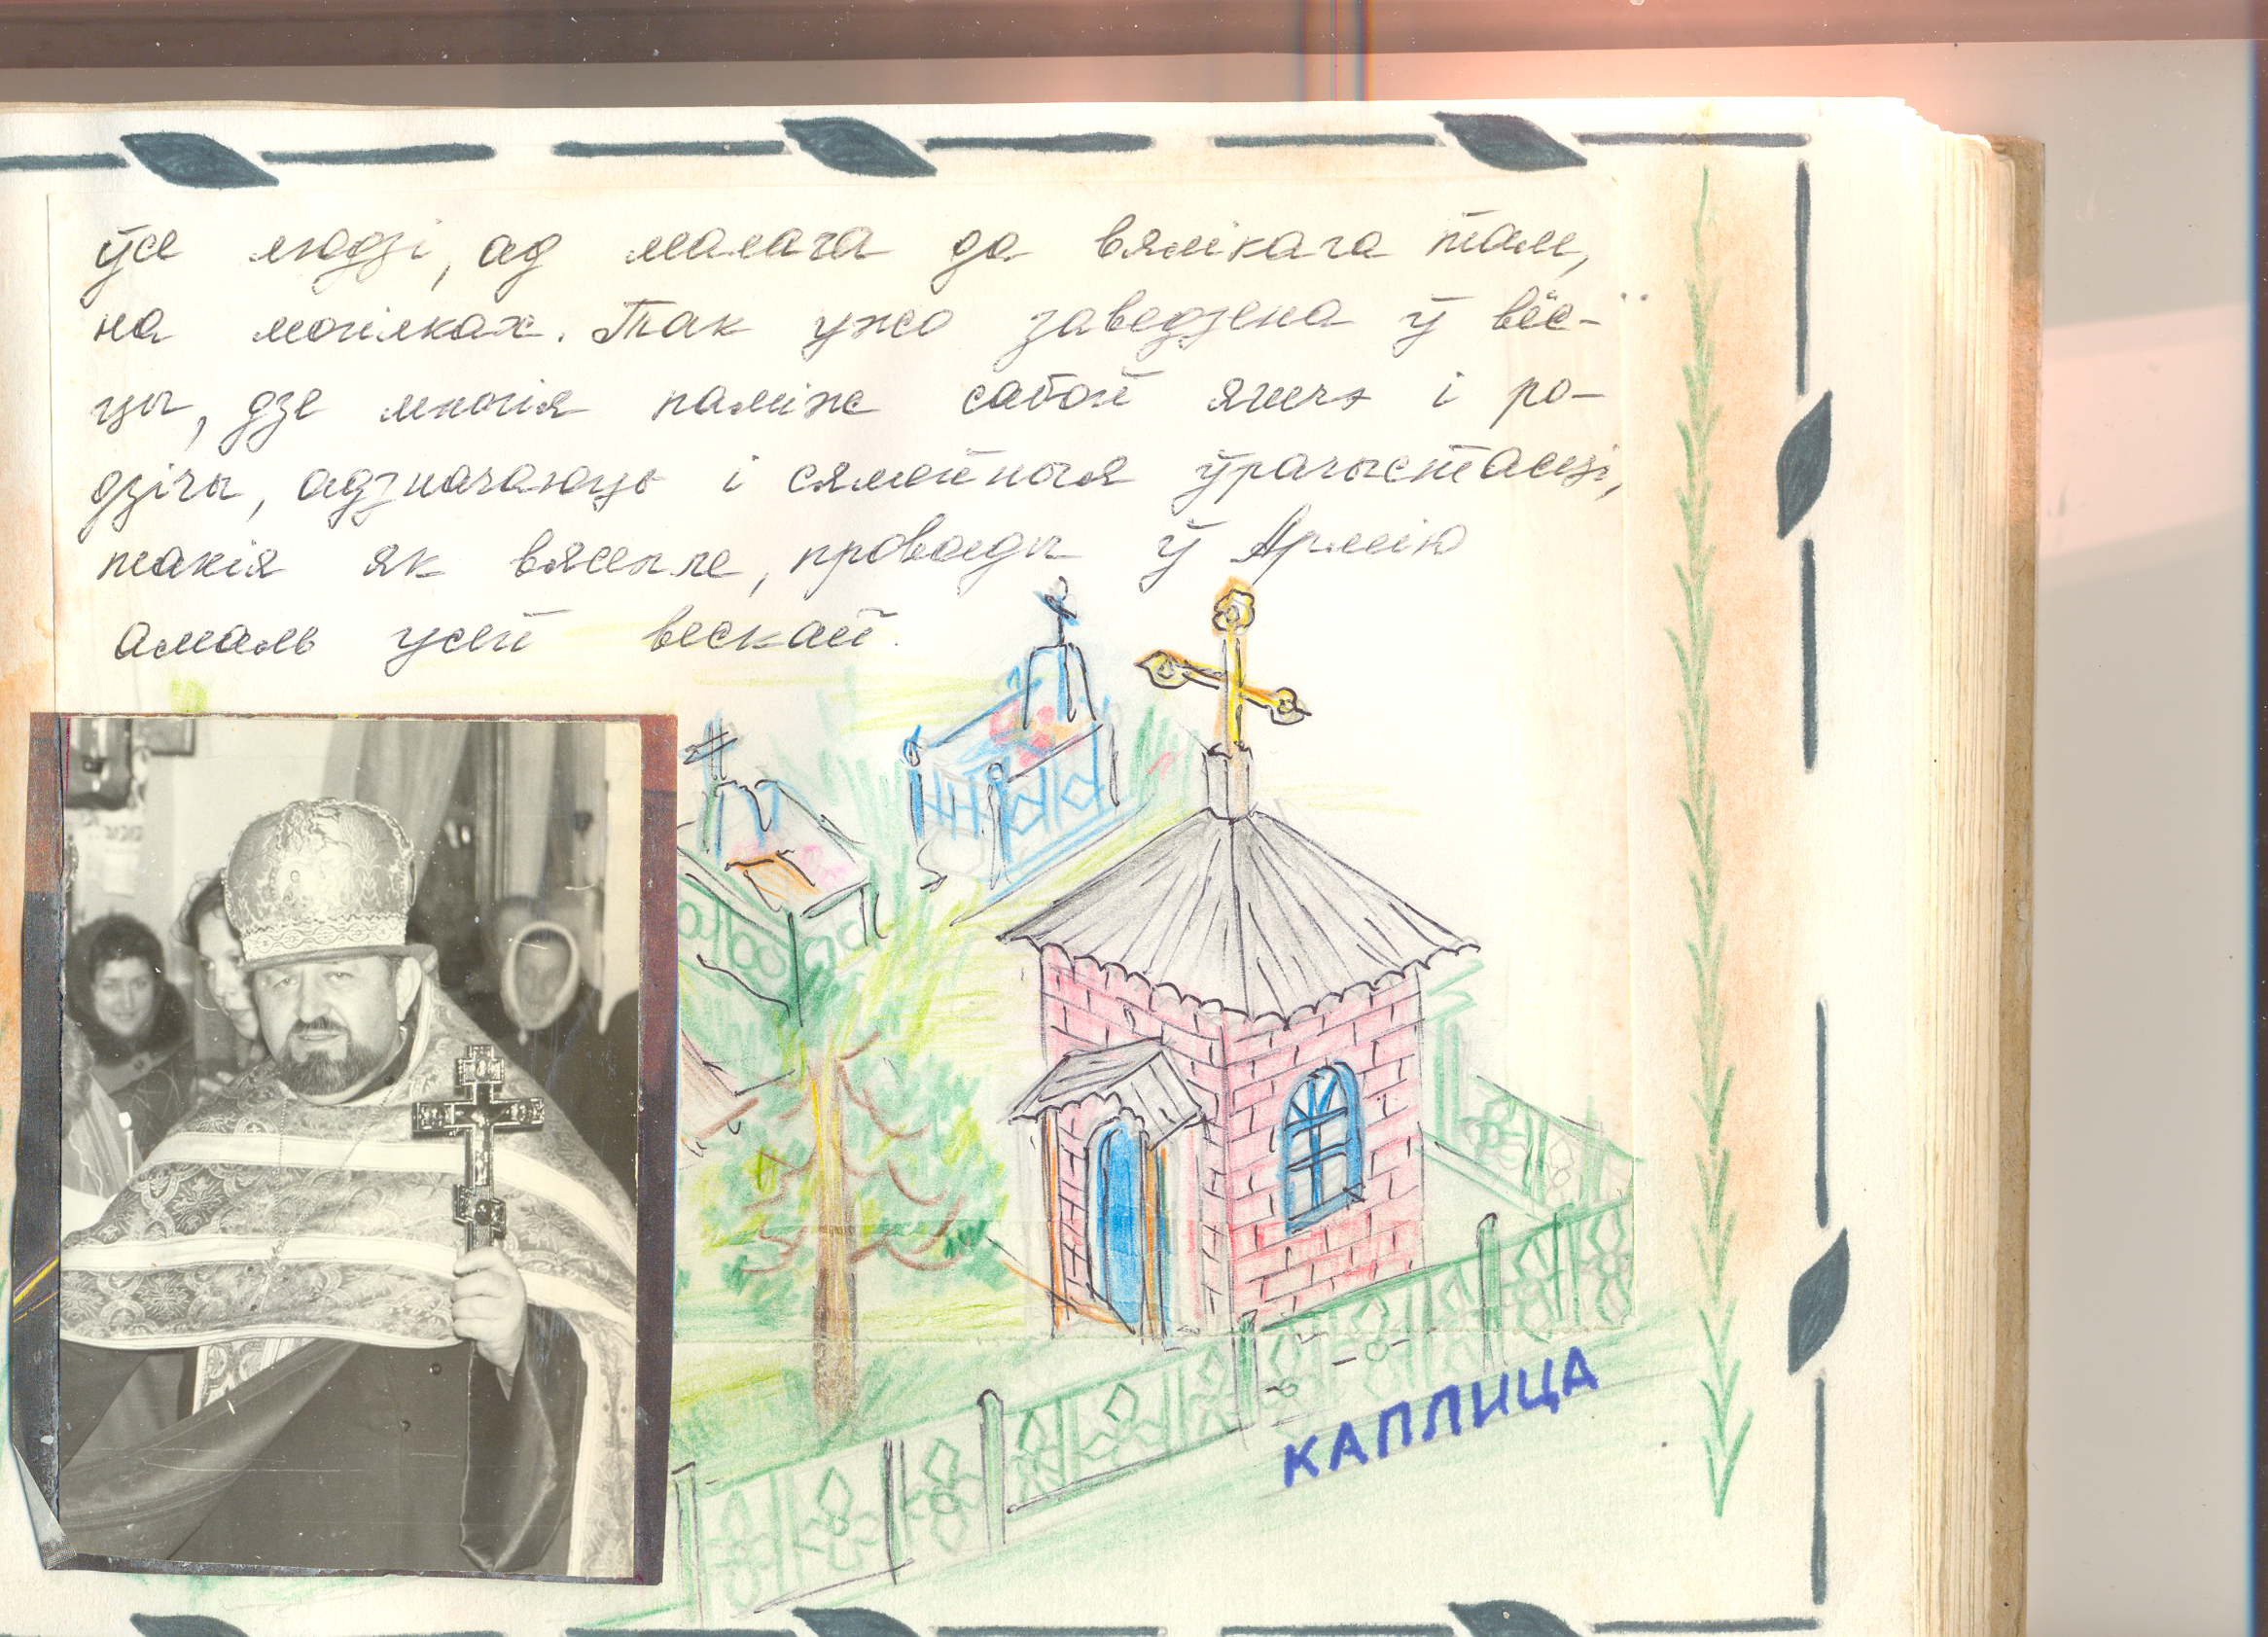 ўсе людзі, ад малага да вялікага там,
на могілках. Так ужо заведзена ў вёс-
цы, дзе многія паміж сабой яшчэ і ро-
дзічы, адзначаюць і сямейныя ўрачыстасці,
такія як вяселле, провады ў Армію
амаль усей вескай.
КАПЛИЦА